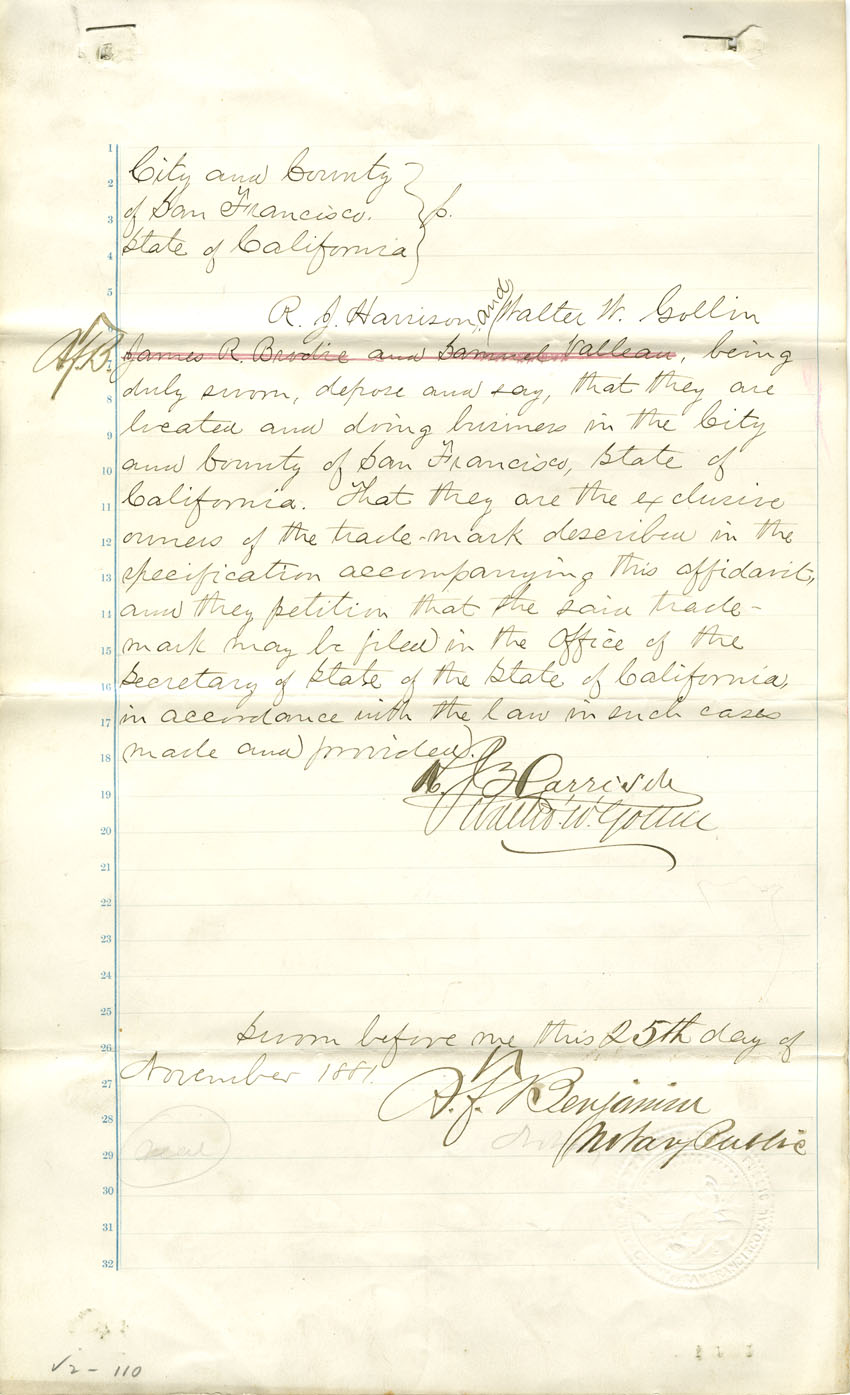 City and County
of San Francisco. } ss.
State of California
R. J. Harrison, and Walter W. Gollin
A.J.B. James R. Brodie and Samuel Valleau, being
duly sworn, depose and say, that they are
located and doing business in the City
and County of San Francisco, State of
California. That they are the exclusive
owners of the trade-mark described in the
specification accompanying this affidavit,
and they petition that the said trade-
mark may be filed in the office of the
Secretary of State of the State of California,
in accordance with the law in such cases
made and provided.
R. J. Harrison
Walter W. Gollin
Sworn before me this 25th day of
November 1881.
A. J. Benjamin
Notary Public
seal
1
2
3
4
5
7
8
9
10
11
12
13
14
15
16
17
18
19
20
21
22
23
24
25
26
27
28
29
30
31
32
V2 - 110